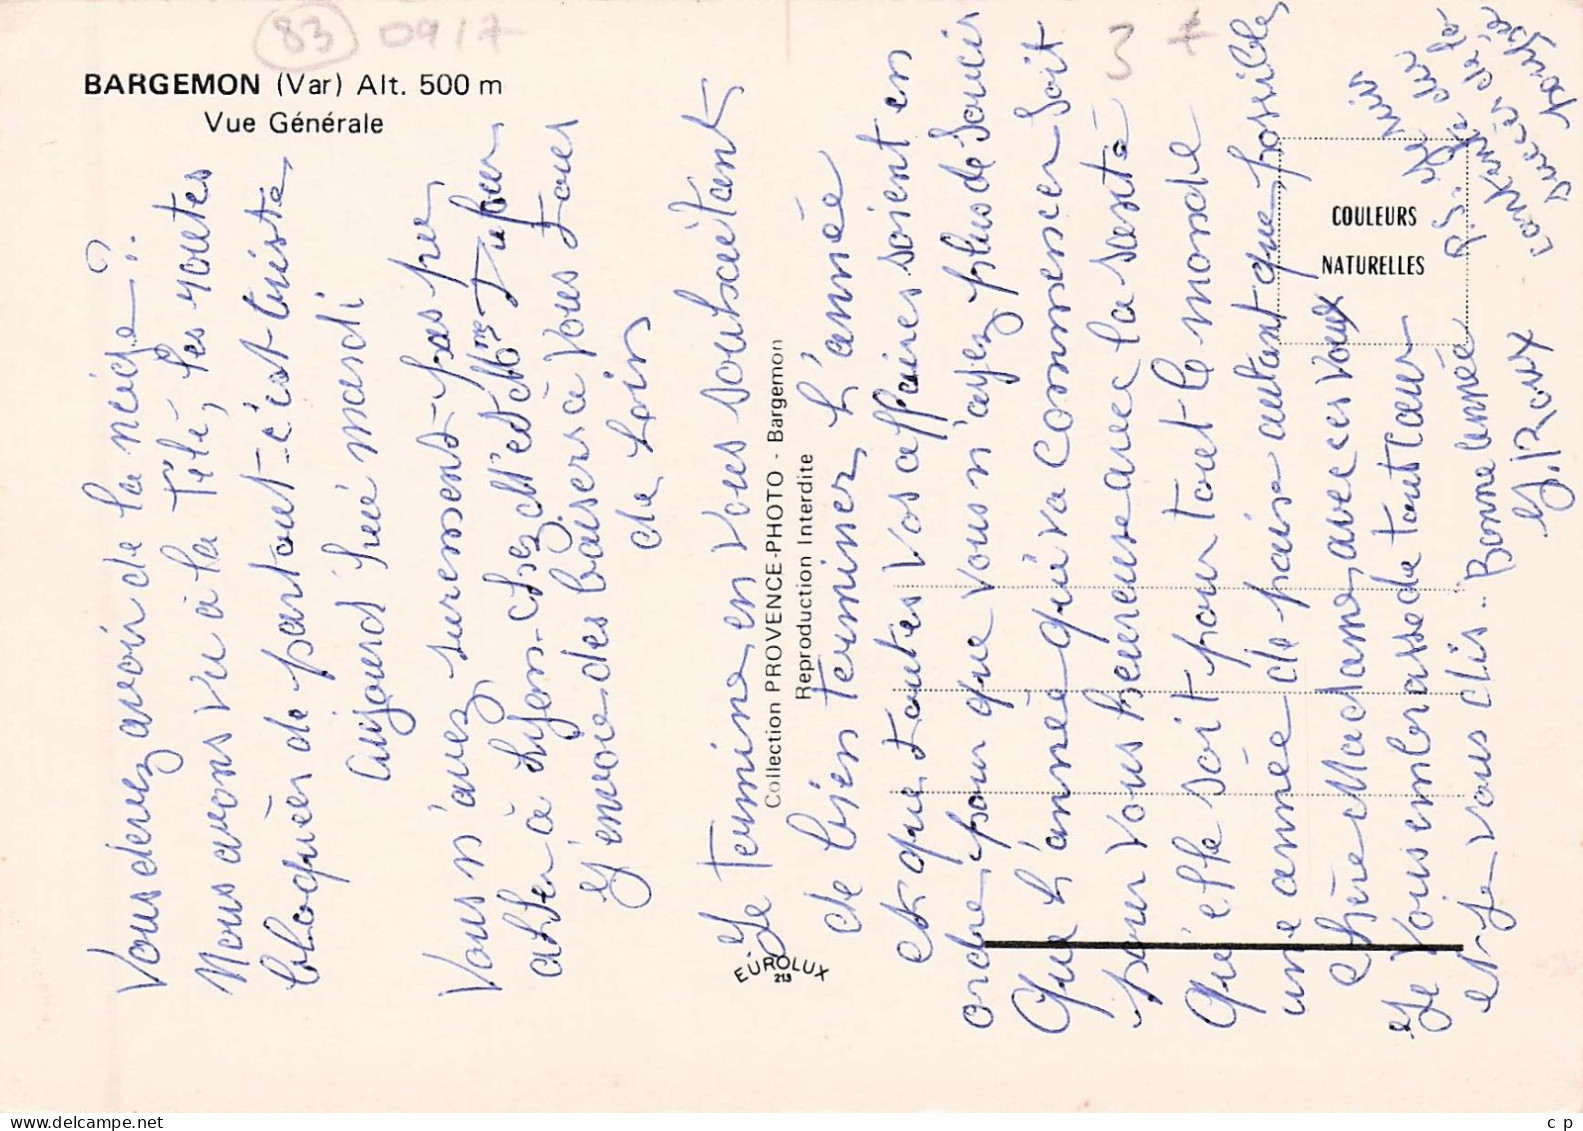 83 0917
BARGEMON (Var) Alt. 500 m
Vue Générale
3
Vous devez avoir de la neige ?.
Nous avons vu à la Télé, les routes
bloquèes de partout c'est triste,
aujourd'hui mardi
Vous n'avez surement pas pu
aller à Lyon. chez Mr et Mme
J'envoie des baisers à vous Tous
de loin
Je Termine, en vous souhaitant
de bien Terminer, l'année
et que Toutes vos affaires soient en
ordre, pour que vous n'ayez plus de Soucis
Que l'année qui va commencer soit
pour vous heureuse avec la santé
qu'elle soit pour tout le monde
une année de paix autant que possible,
Chère Madame, avec ces voeux
Je vous embrasse de tout coeur
et je vous dis.. Bonne Année
G. Roux
P.S. Je suis
contente du
succès de la
poupée
Collection PROVENCE-PHOTO - Bargemon
Reproduction Interdite
EUROLUX
213
COULEURS
NATURELLES
c p